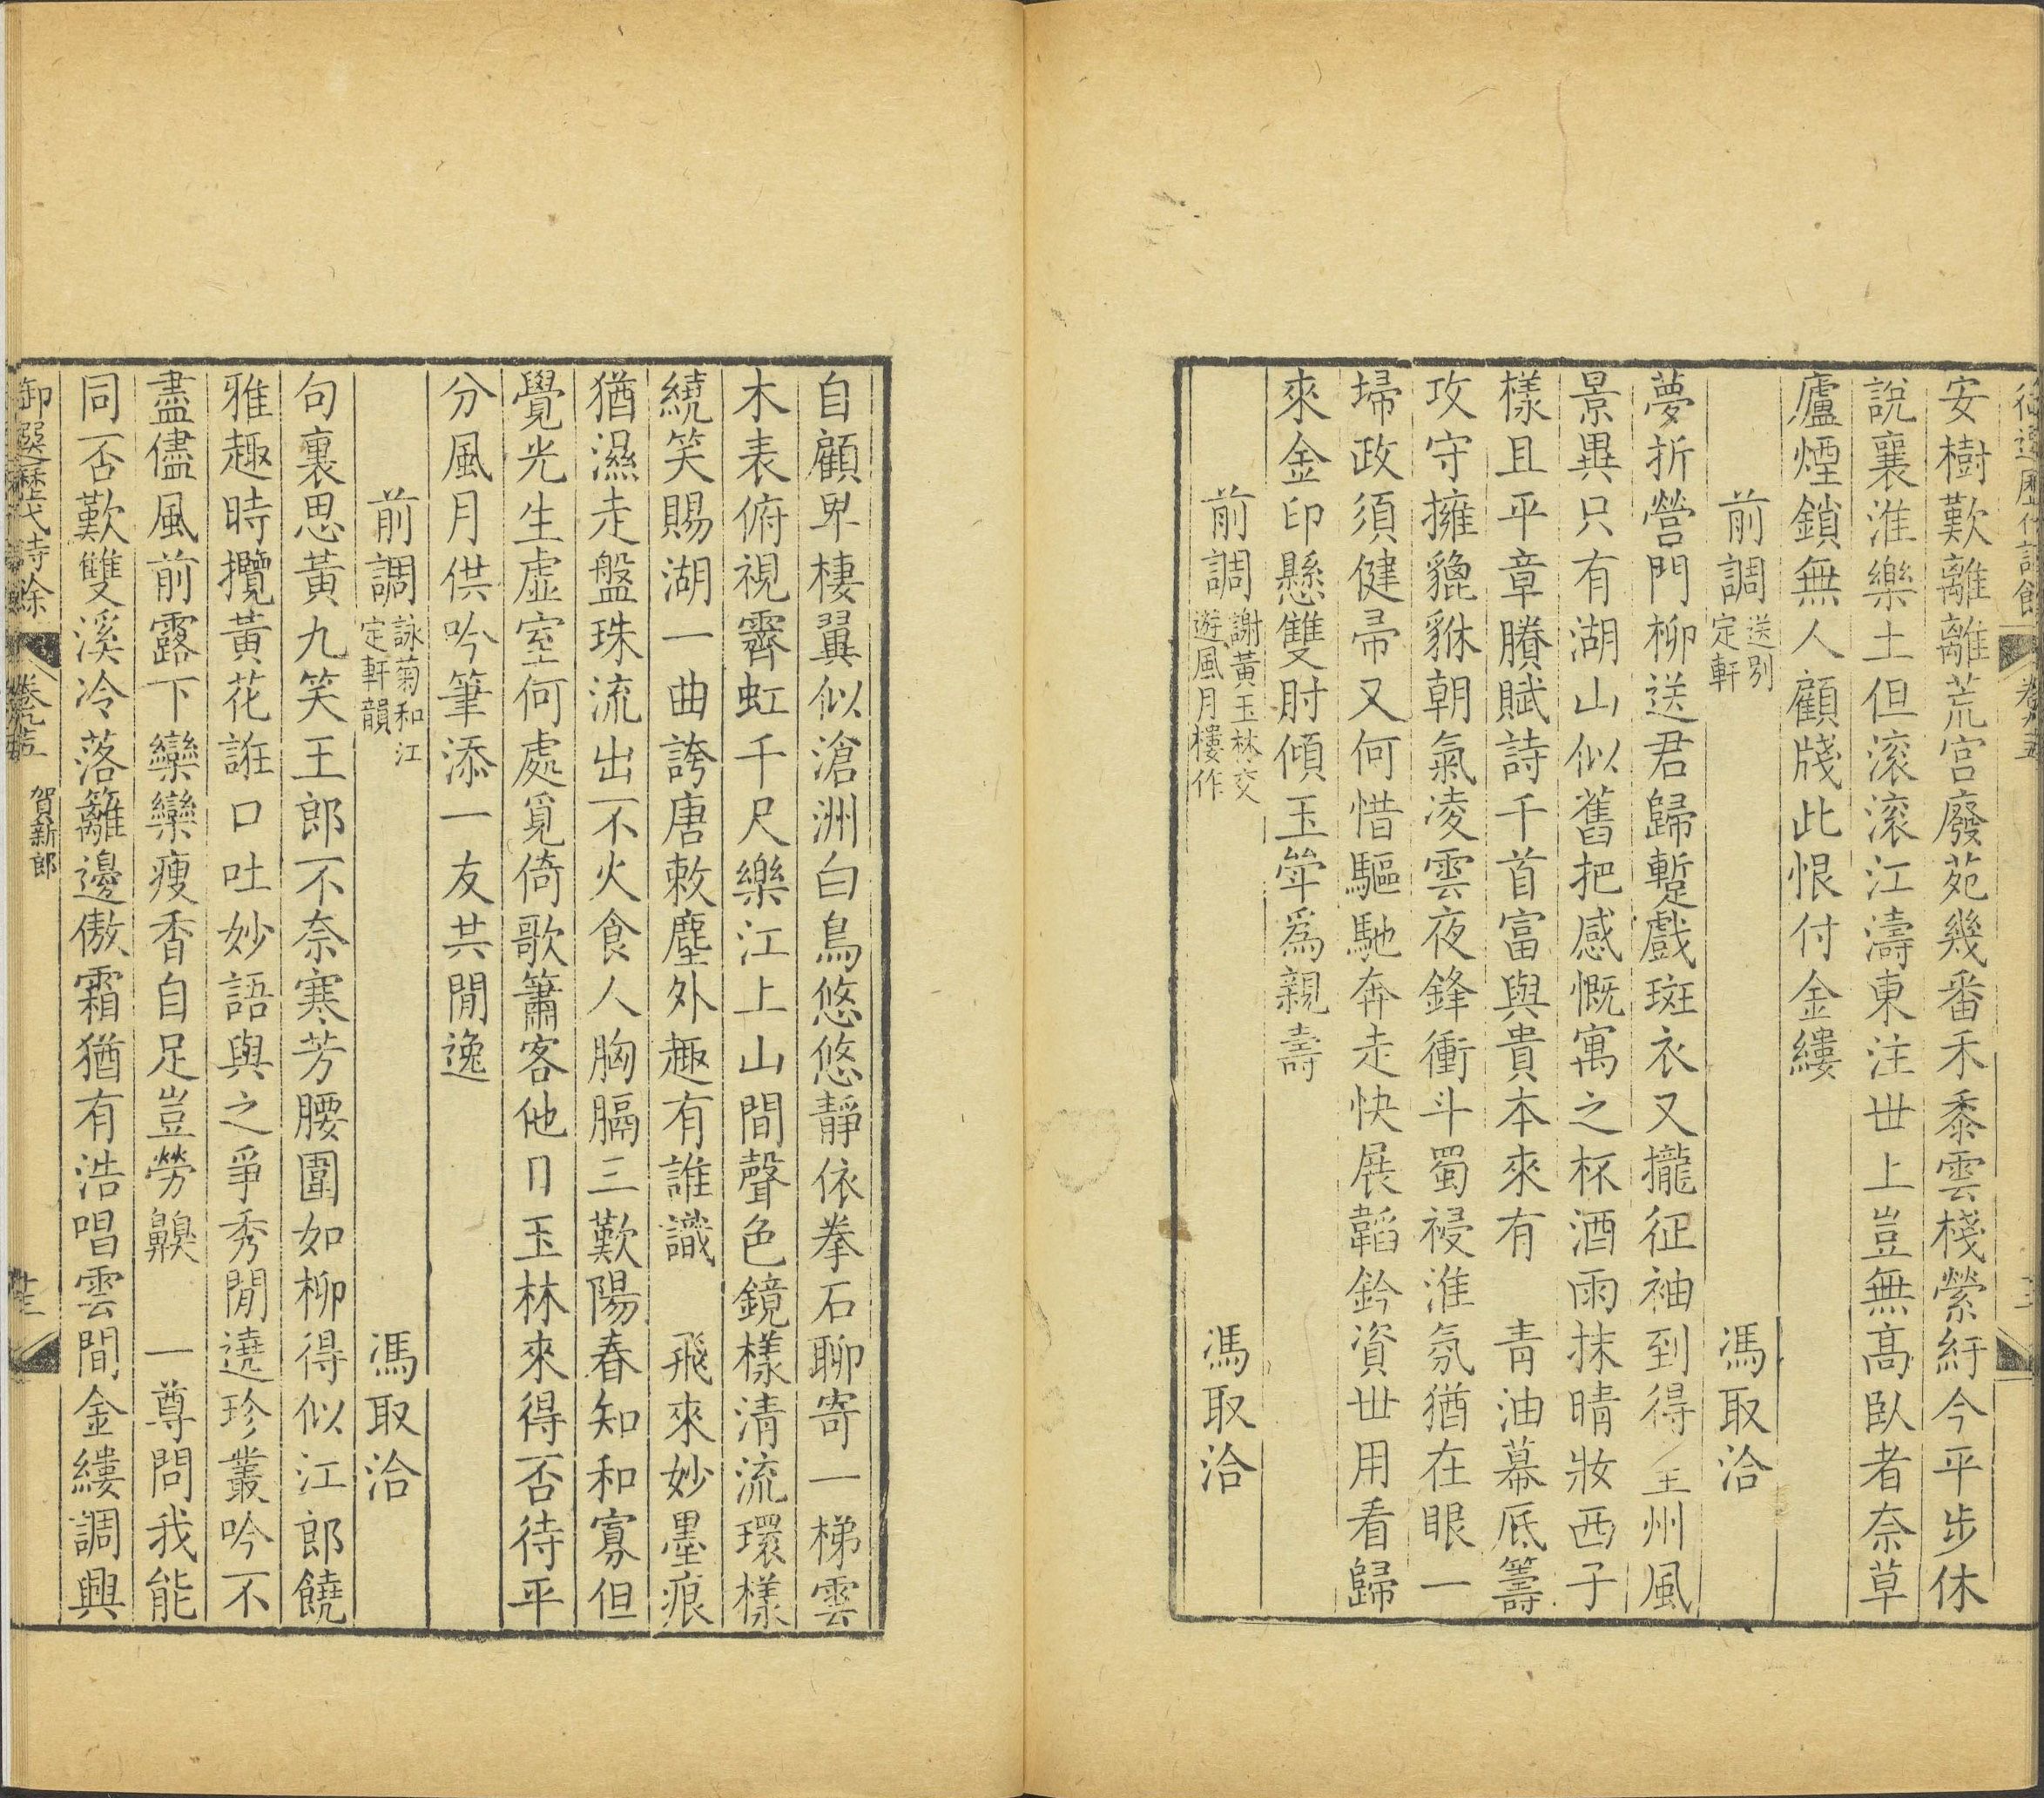 安樹歎離離荒宮廢苑幾番禾黍雲棧縈紆今平步休
說襄淮樂土但滾滾江濤東注世上豈無高臥者奈草
廬煙鎖無人顧牋此恨付金縷
前調 送別定軒 馮取洽
夢折營門柳送君歸蹔戲斑衣又攏征袖到得 州風
景異只有湖山似舊把感慨寓之杯酒雨抹晴妝西子
樣且平章賸賦詩千首富與貴本來有 青油幕底籌
攻守擁貔貅朝氣凌雲夜鋒衝斗蜀祲淮氛猶在眼一
埽政須健帚又何惜驅馳奔走快展韜鈐資世用看歸
來金印懸雙肘傾玉斝爲親壽
前調 謝黃玉林交遊風月樓作 馮取洽
自顧卑棲翼似滄洲白鳥悠悠靜依拳石聊寄一梯雲
木表俯視霽虹千尺樂江上山間聲色鏡樣清流環樣
繞笑賜湖一曲誇唐敕塵外趣有誰識 飛來妙墨痕
猶濕走盤珠流出不火食人胸膈三歎陽春知和寡但
覺光生虛室何處覓倚歌簫客他日玉林來得否待平
分風月供吟筆添一友共閒逸
前調 詠菊和江定軒韻 馮取洽
句裏思黃九笑王郎不奈寒芳腰圍如柳得似江郎饒
雅趣時攬黃花誑口吐妙語與之爭秀閒遶珍叢吟不
盡儘風前露下欒欒瘦香自足豈勞齅 一尊問我能
同否歎雙溪冷落籬邊傲霜猶有浩唱雲間金縷調興
御選歷代詩餘 卷九十五 賀新郎